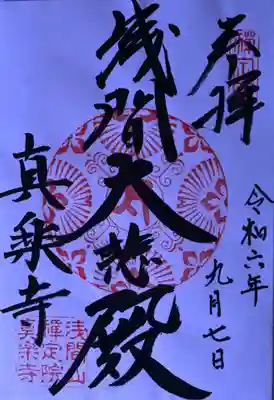 奉拝
令和六年
九月七日
浅間大悲殿
真楽寺
浅間山
禅定院
真楽寺